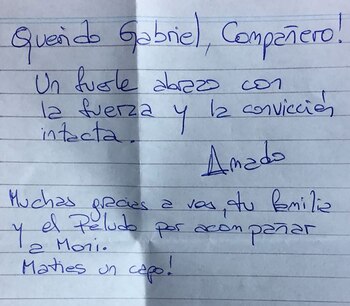 Querido Gabriel, Compañero!
Un fuerte abrazo con
la fuerza y la convicción
intacta.
Amado
Muchas gracias a vos, tu familia
y el Peludo por acompañar
a Mori.
Maties un capo!